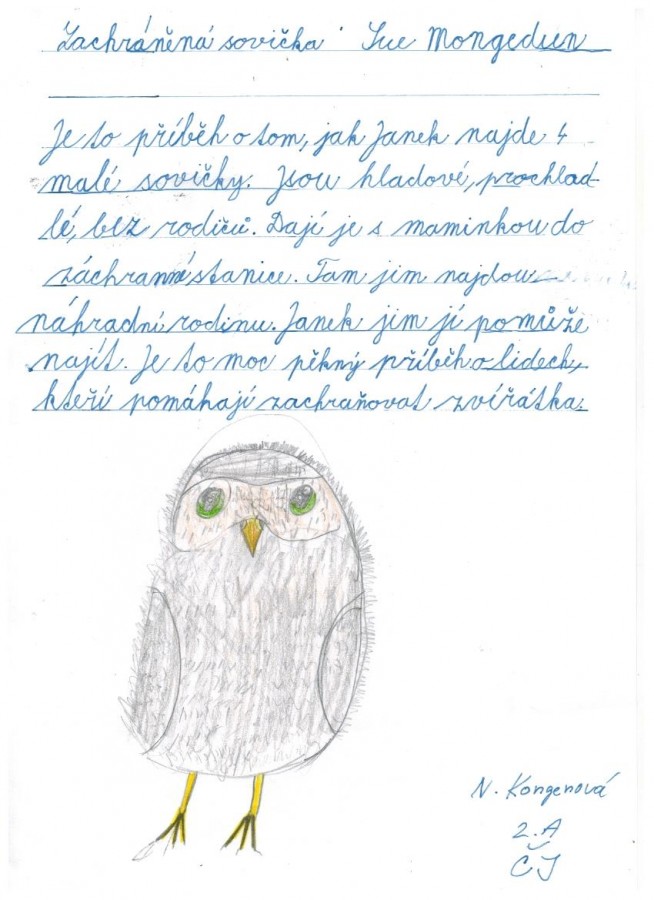 Zachráněná sovička Sue Mongedun
Je to příběh o tom, jak Janek najde 4
malé sovičky. Jsou hladové, prochlad-
lé, bez rodičů. Dají je s maminkou do
záchranné stanice. Tam jim najdou
náhradní rodinu. Janek jim jí pomůže
najít. Je to moc pěkný příběh o lidech,
kteří pomáhají zachraňovat zvířátka.
N. Kongenová
2.A
ČJ